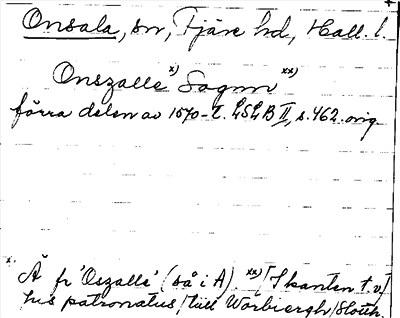 Onsala, sn, Fjäre hd, Hall. l.
Onszalle x) Sognn xx)
förra delen av 1570-t. LSLB II, s. 462. orig.
x. Ä fr 'Oszalle' (så i A). xx) [I kanten t.v.]
his patronatus / till Warbiergh / Slott.